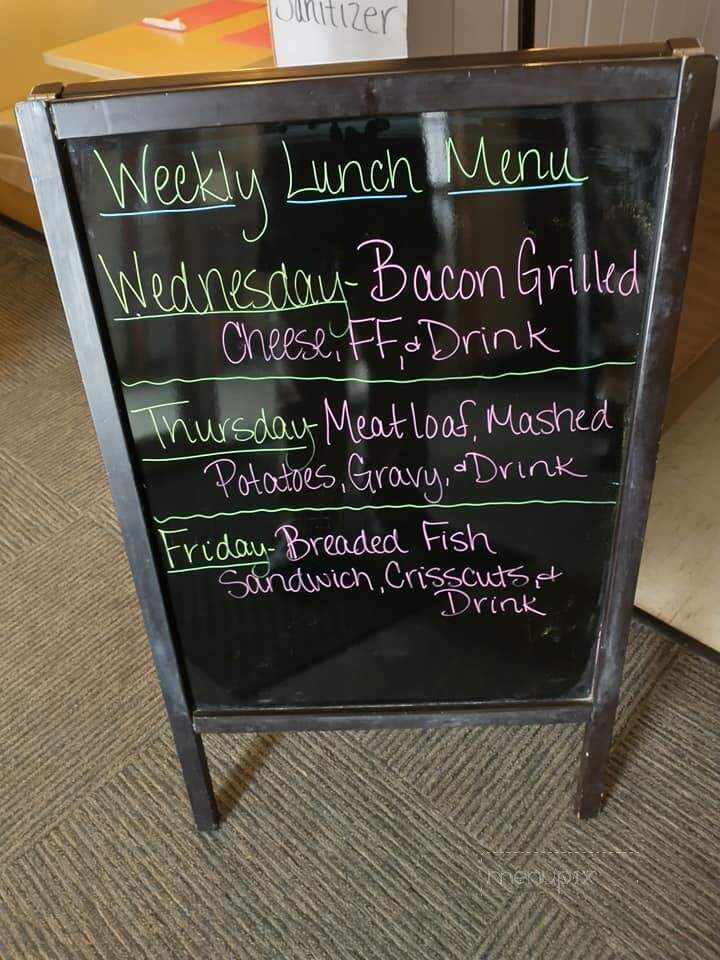 Sanitizer
Weekly Lunch Menu
Wednesday- Bacon Grilled
Cheese, FF, & Drink
Thursday- Meatloaf, Mashed
Potatoes, Gravy, & Drink
Friday- Breaded Fish
Sandwich, Crisscuts, &
Drink
menupix